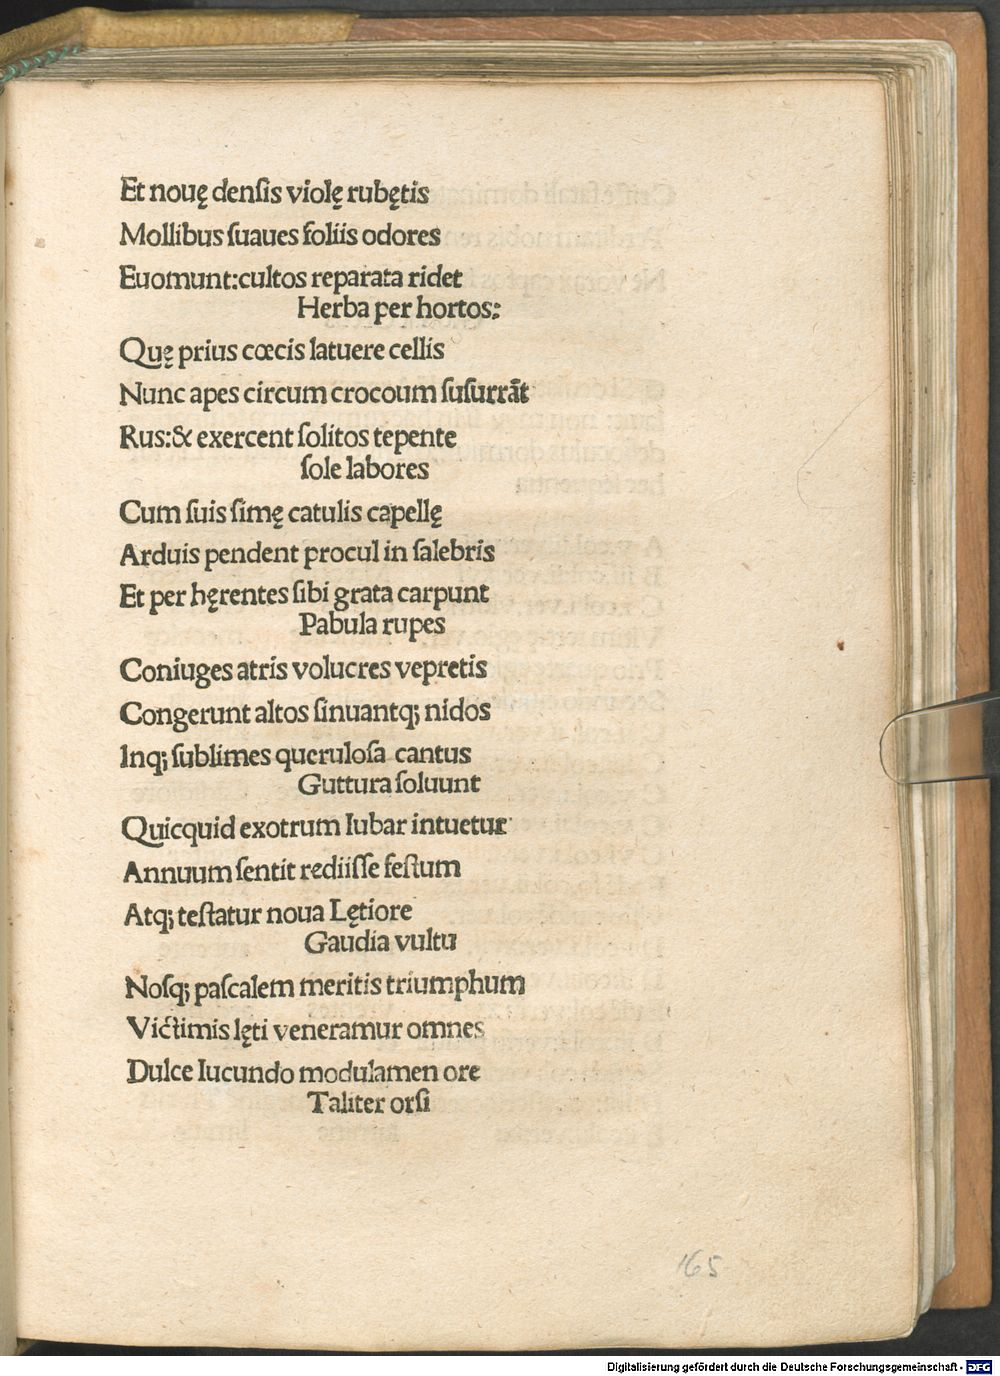 Et nouę denſis violę rubętis
Mollibus ſuaues foliis odores
Euomunt:cultos reparata ridet
Herba per hortos:
Quę prius cœcis latuere cellis
Nunc apes circum crocoum ſuſurrāt
Rus:& exercent ſolitos tepente
ſole labores
Cum ſuis ſimę catulis capellę
Arduis pendent procul in ſalebris
Et per hęrentes ſibi grata carpunt
Pabula rupes
Coniuges atris volucres vepretis
Congerunt altos ſinuantq; nidos
Inq; ſublimes queruloſa cantus
Guttura ſoluunt
Quicquid exotrum Iubar intuetur
Annuum ſentit rediiſſe feſtum
Atq; teſtatur noua Lętiore
Gaudia vultu
Noſq; paſcalem meritis triumphum
Victimis lęti veneramur omnes
Dulce Iucundo modulamen ore
Taliter orſi
165
Digitalisierung gefördert durch die Deutsche Forschungsgemeinschaft - DFG